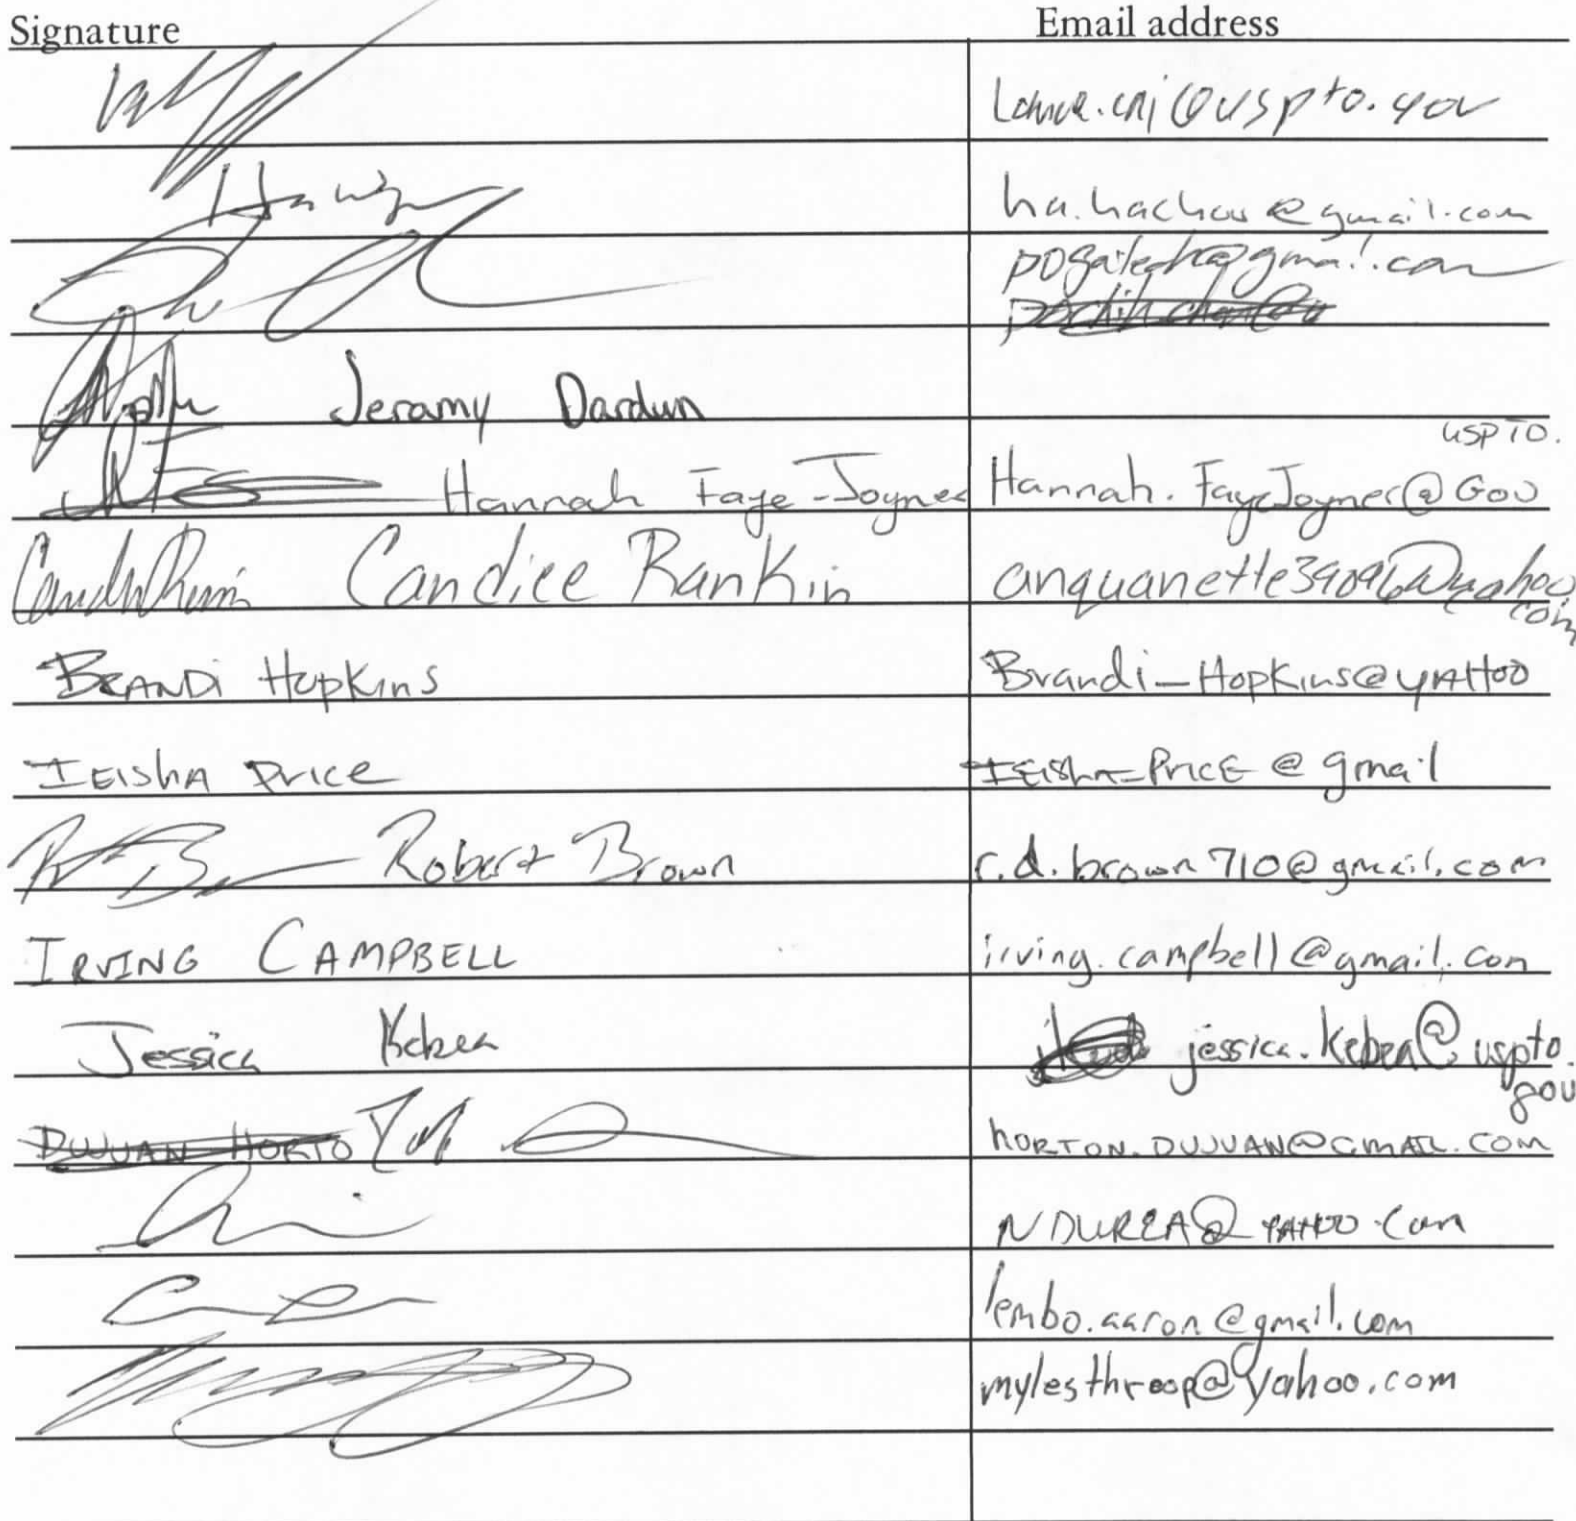 Signature Email address
@uspto.gov
ha.hachou@gmail.com
@gmail.com
Jeramy Dardun
uspto.
Hannah Faye-Joyner Hannah.FayeJoyner@Gov
Candice Rankin anquanette39096@yahoo
com
BRANDi HopKins Brandi_Hopkins@yAHoo
IEishA Price IEishA_PricE @ gmail
Robert Brown r.d.brown710@gmail.com
IRVING CAMPBELL irving.campbell@gmail.com
Jessica Kebea jessica.kebea@uspto.
gov
DUJUAN HORTO hORTON.DUJUAN@GMAIL.COM
NDUREA@YAHOO.Com
lembo.aaron@gmail.com
mylesthroop@yahoo.com